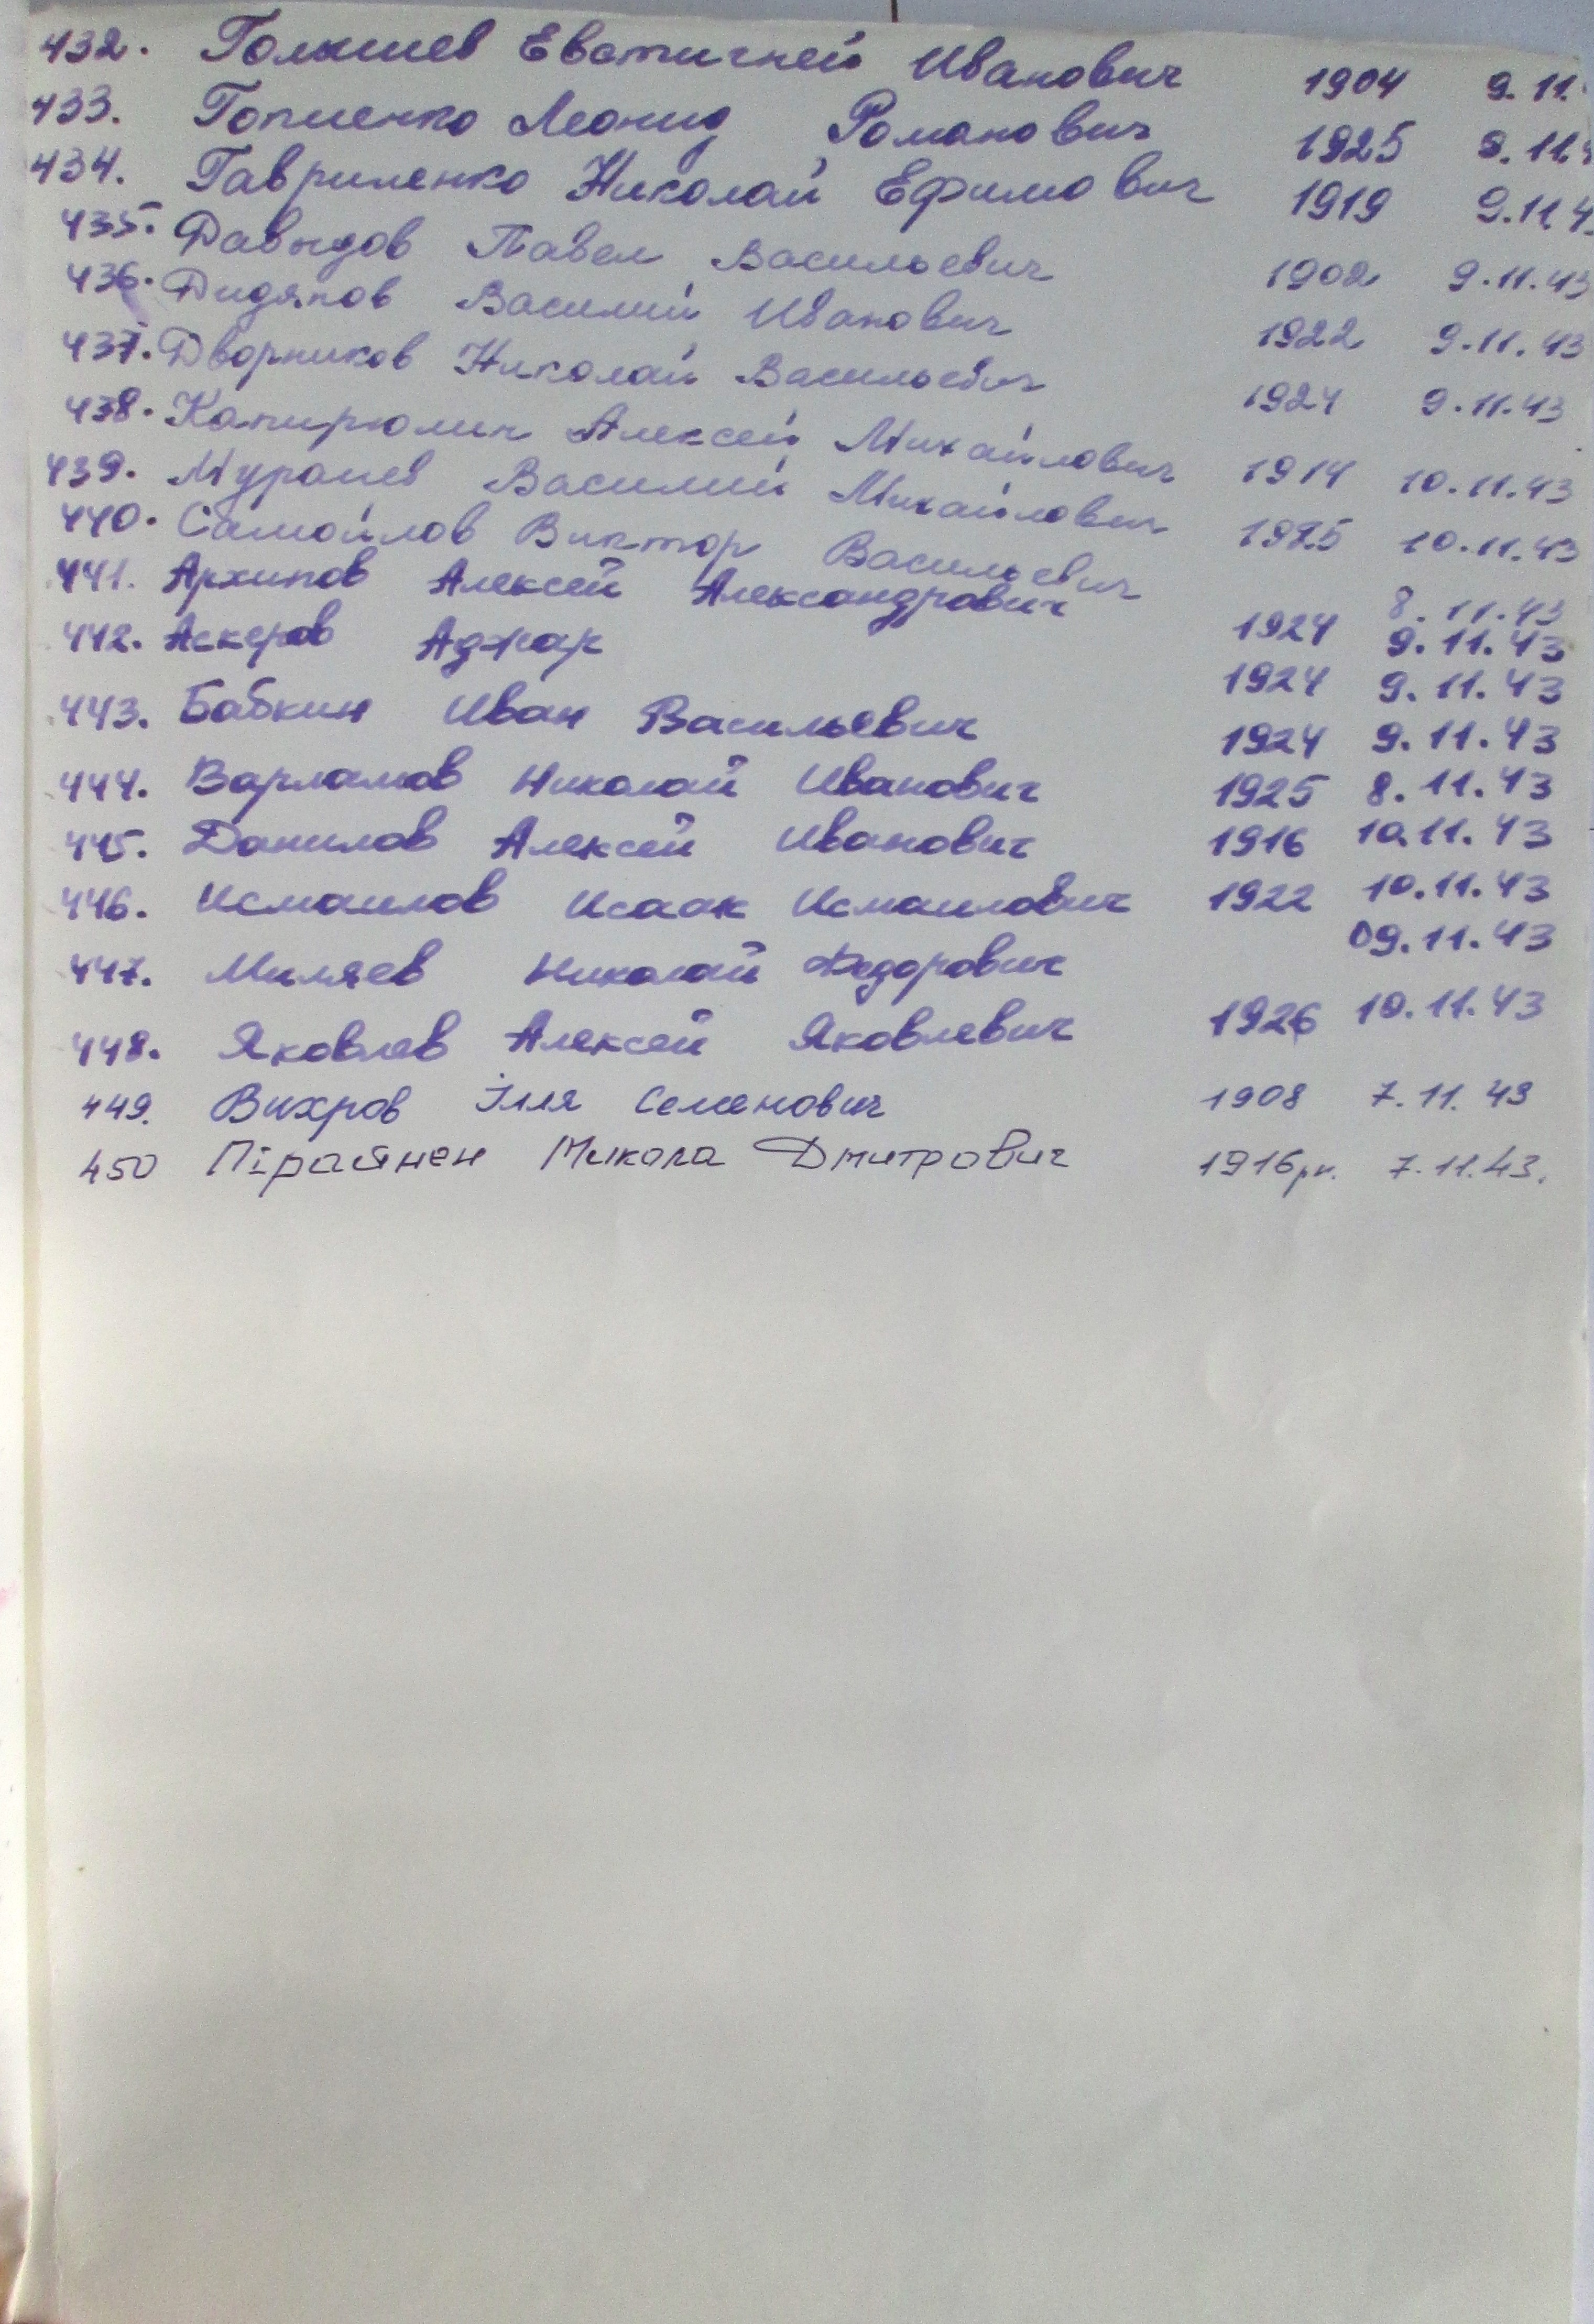 432. Голышев Евстигней Иванович 1904 9.11.
433. Гопиенко Леонид Романович 1925 9.11.4
434. Гавриленко Николай Ефимович 1919 9.11.43
435. Давыдов Павел Васильевич 1902 9.11.43
436. Дидяков Василий Иванович 1922 9.11.43
437. Дворников Николай Васильевич 1924 9.11.43
438. Капирюлин Алексей Михайлович 1914 10.11.43
439. Василий Михайлович 1925 10.11.43
440. Самойлов Виктор Васильевич 8.11.43
441. Архипов Алексей Александрович 1924 9.11.43
442. Аскеров Аджар 1924 9.11.43
443. Бабкин Иван Васильевич 1924 9.11.43
444. Варламов Николай Иванович 1925 8.11.43
445. Данилов Алексей Иванович 1916 10.11.43
446. Исмаилов Исаак Исмаилович 1922 10.11.43
447. Миляев Николай Федорович 09.11.43
448. Яковлев Алексей Яковлевич 1926 10.11.43
449. Вихров Ілля Семенович 1908 7.11.43
450 Пірайянен Микола Дмитрович 1916рн. 7.11.43.